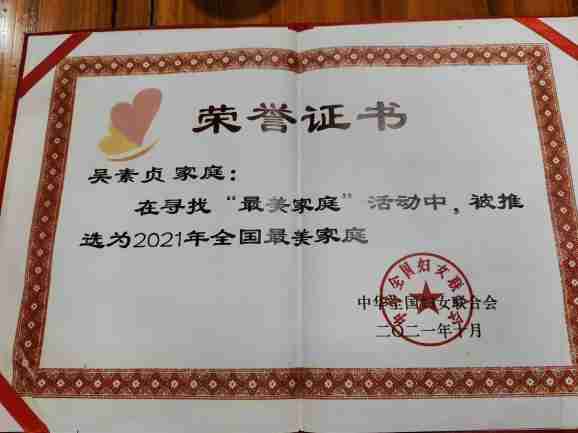 荣誉证书
吴素贞 家庭：
在寻找“最美家庭”活动中，被推
选为2021年全国最美家庭
中华全国妇女联合会
二〇二一年十月
中华全国妇女联合会